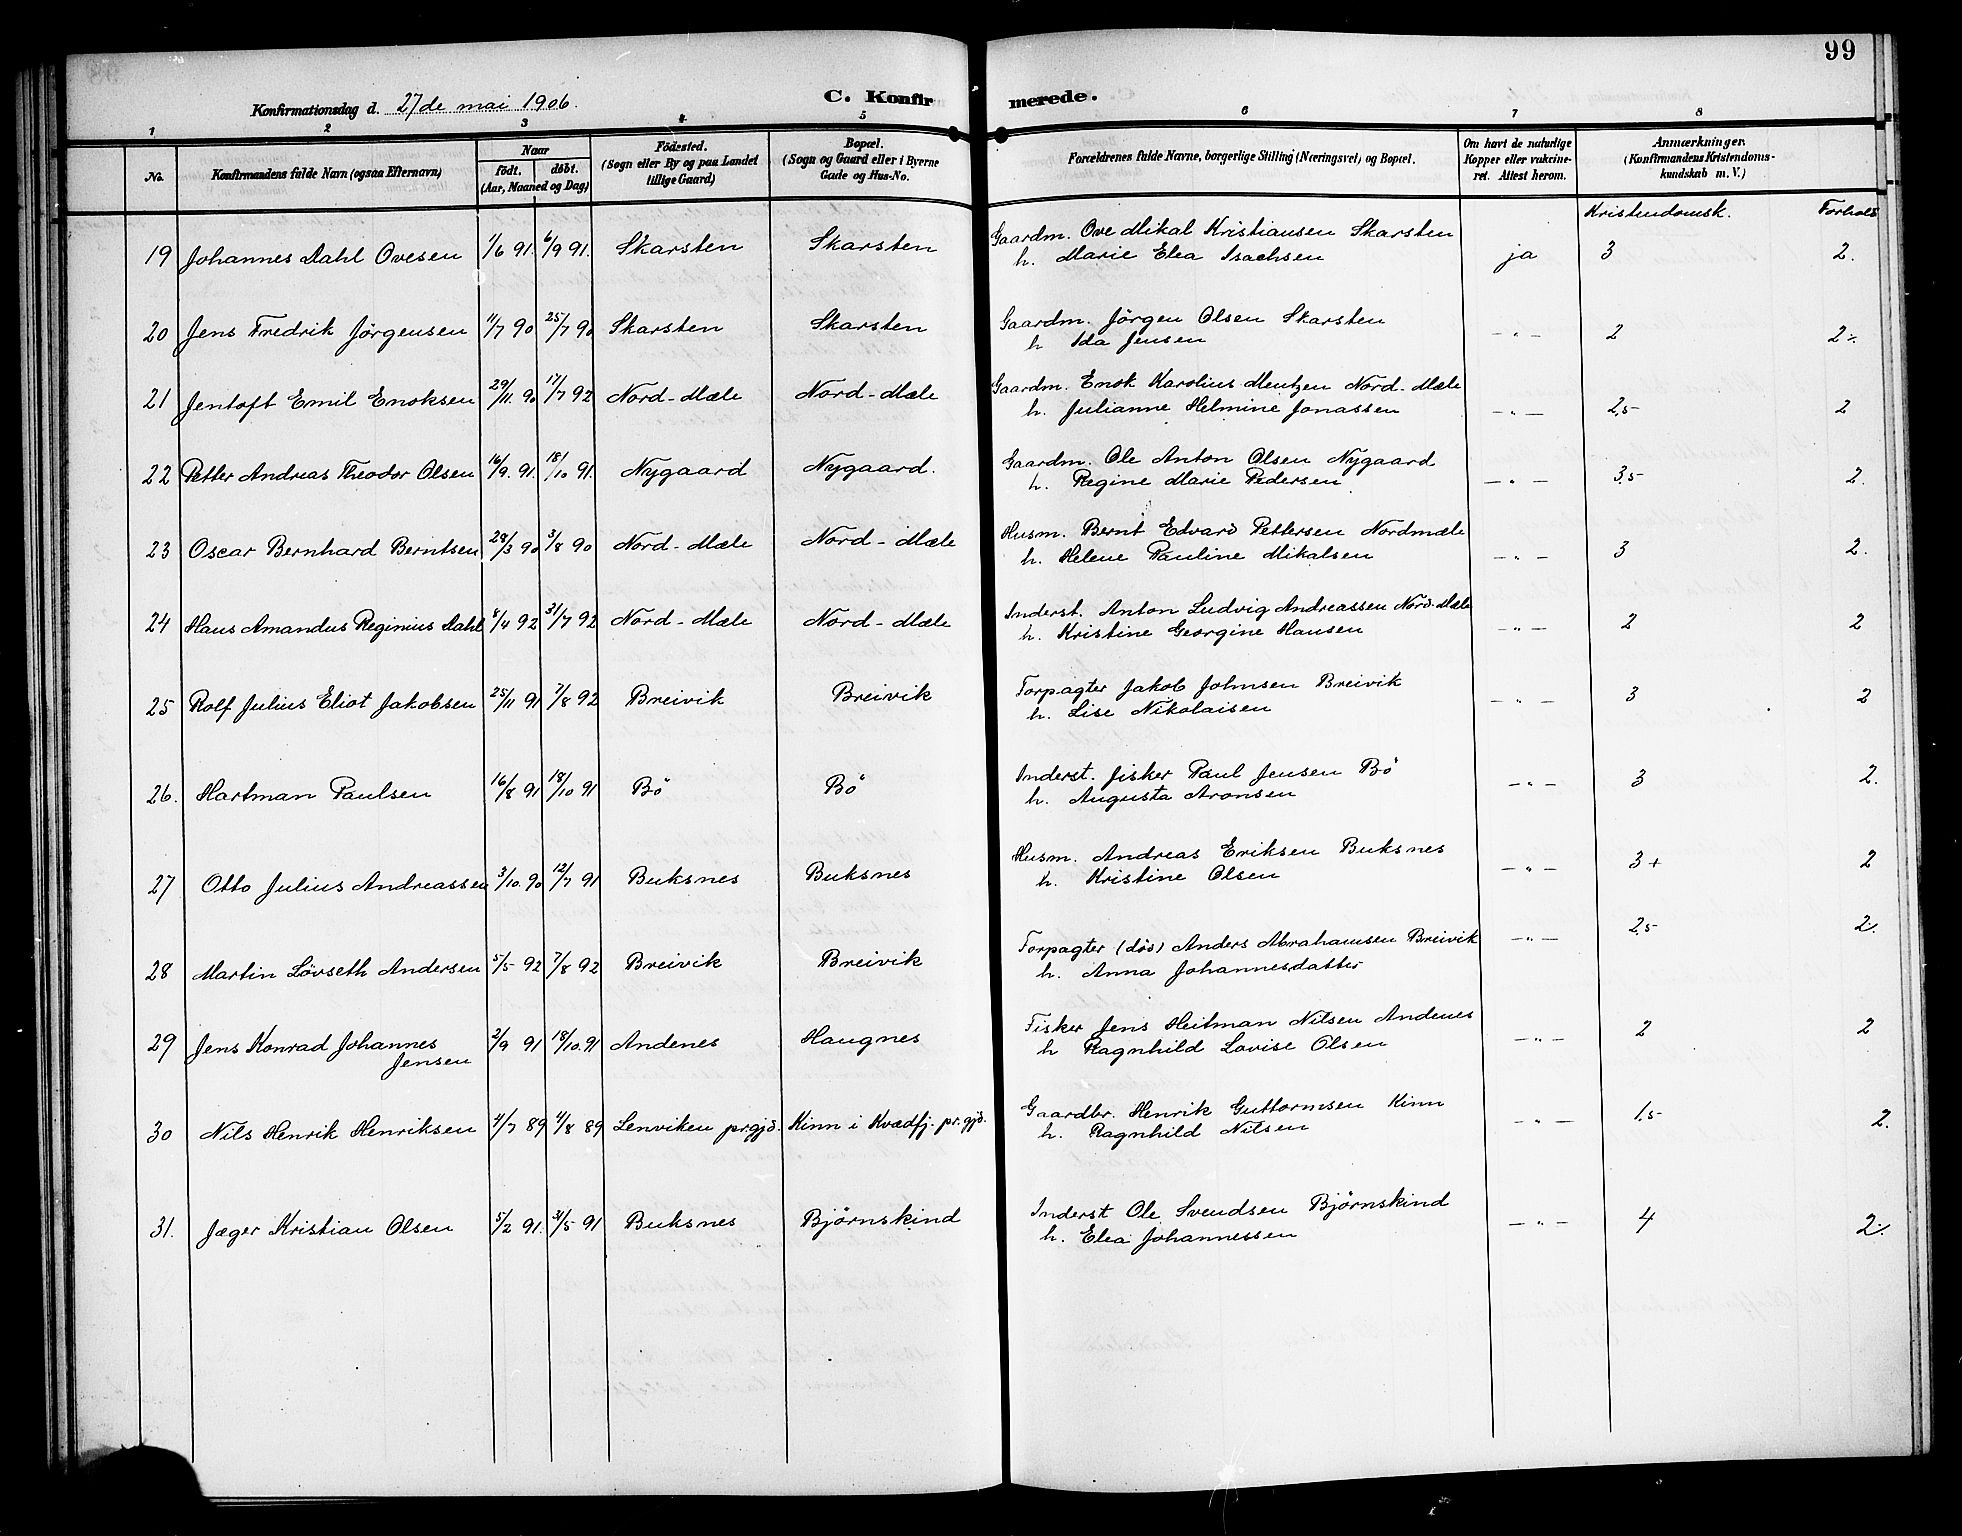 99
Konfirmationsdag d. 27de mai 1906. C. Konfirmerede.
1 2 3 4 5 6 7 8
No. Konfirmandens fulde Navn (ogsaa Efternavn) Naar født. døbt. (Aar, Maaned og Dag) Fødested. (Sogn eller By og paa Landet tillige Gaard) Bopæl. (Sogn og Gaard eller i Byerne Gade og Hus-No. Forældrenes fulde Navne, borgerlige Stilling (Næringsvei) og Bopæl. Om havt de naturlige Kopper eller vaccineret. Attest herom. Anmærkninger. (Konfirmandens Kristendomskundskab m. V.)
Kristendomsk. Forhold
19 Johannes Dahl Ovesen 1/6 91. 6/9 91. Skarsten Skarsten Gaardm. Ove Mikal Kristiansen Skarsten ja 3 2.
h. Marie Elea Isachsen
20 Jens Fredrik Jørgensen 11/7 90 25/7 90 Skarsten Skarsten Gaardm. Jørgen Olsen Skarsten — „ — 2 2÷
h Ida Jensen
21 Jentoft Emil Enoksen 29/11. 90 17/7 92 Nord-Mæle Nord-Mæle Gaardm. Enok Karolius Mentzen Nord-Mæle — „ — 2,5 2
h. Julianne Helmine Jonassen
22 Petter Andreas Theodor Olsen 16/9. 91. 18/10 91. Nygaard Nygaard. Gaardm. Ole Anton Olsen Nygaard — „ — 3,5 2.
h. Regine Marie Pedersen
23 Oscar Bernhard Berntsen 28/3 90 3/8 90 Nord-Mæle Nord-Mæle Husm. Bernt Edvard Pettersen Nordmæle — „ — 3 2.
h. Helene Pauline Mikalsen
24 Hans Amandus Reginius Dahl 8/4 92 31/7 92 Nord-Mæle Nord-Mæle Inderst. Anton Ludvig Andreassen Nord-Mæle — „ — 2 2
h. Kristine Georgine Hansen
25 Rolf Julius Eliot Jakobsen 25/11 91 7/8 92 Breivik Breivik Forpagter Jakob Johnsen Breivik — „ — 3 2
h. Lise Nikolaisen
26. Hartman Paulsen 16/8 91 18/10 91 Bö Bö Inderst. fisker Paul Jensen Bö — „ — 3 2.
h. Augusta Aronsen
27 Otto Julius Andreassen 3/10. 90 12/7 91 Buksnes Buksnes Husm. Andreas Eriksen Buksnes — „ — 3+ 2
h. Kristine Olsen
28 Martin Lövseth Andersen 5/5 92 7/8 92 Breivik Breivik Forpagter (död) Anders Abrahamsen Breivik — „ — 2,5 2.
h. Anna Johannesdatter
29 Jens Konrad Johannes Jensen 2/9 91 18/10. 91 Andenes Haugnes Fisker Jens Heitman Nilsen Andenes — „ — 2 2
h Ragnhild Lovise Olsen
30 Nils Henrik Henriksen 4/7 89 4/8 89 Lenviken prgjd. Kinn i Kvædfj. pr.gjd. Gaardbr. Henrik Guttormsen Kinn — „ — 1,5 2.
h. Ragnhild Nilsen
31. Jæger Kristian Olsen 5/2 91. 31/5 91 Buksnes Bjørnskind Inderst Ole Svendsen Bjørnskind — „ — 4 2÷
h. Elea Johannessen